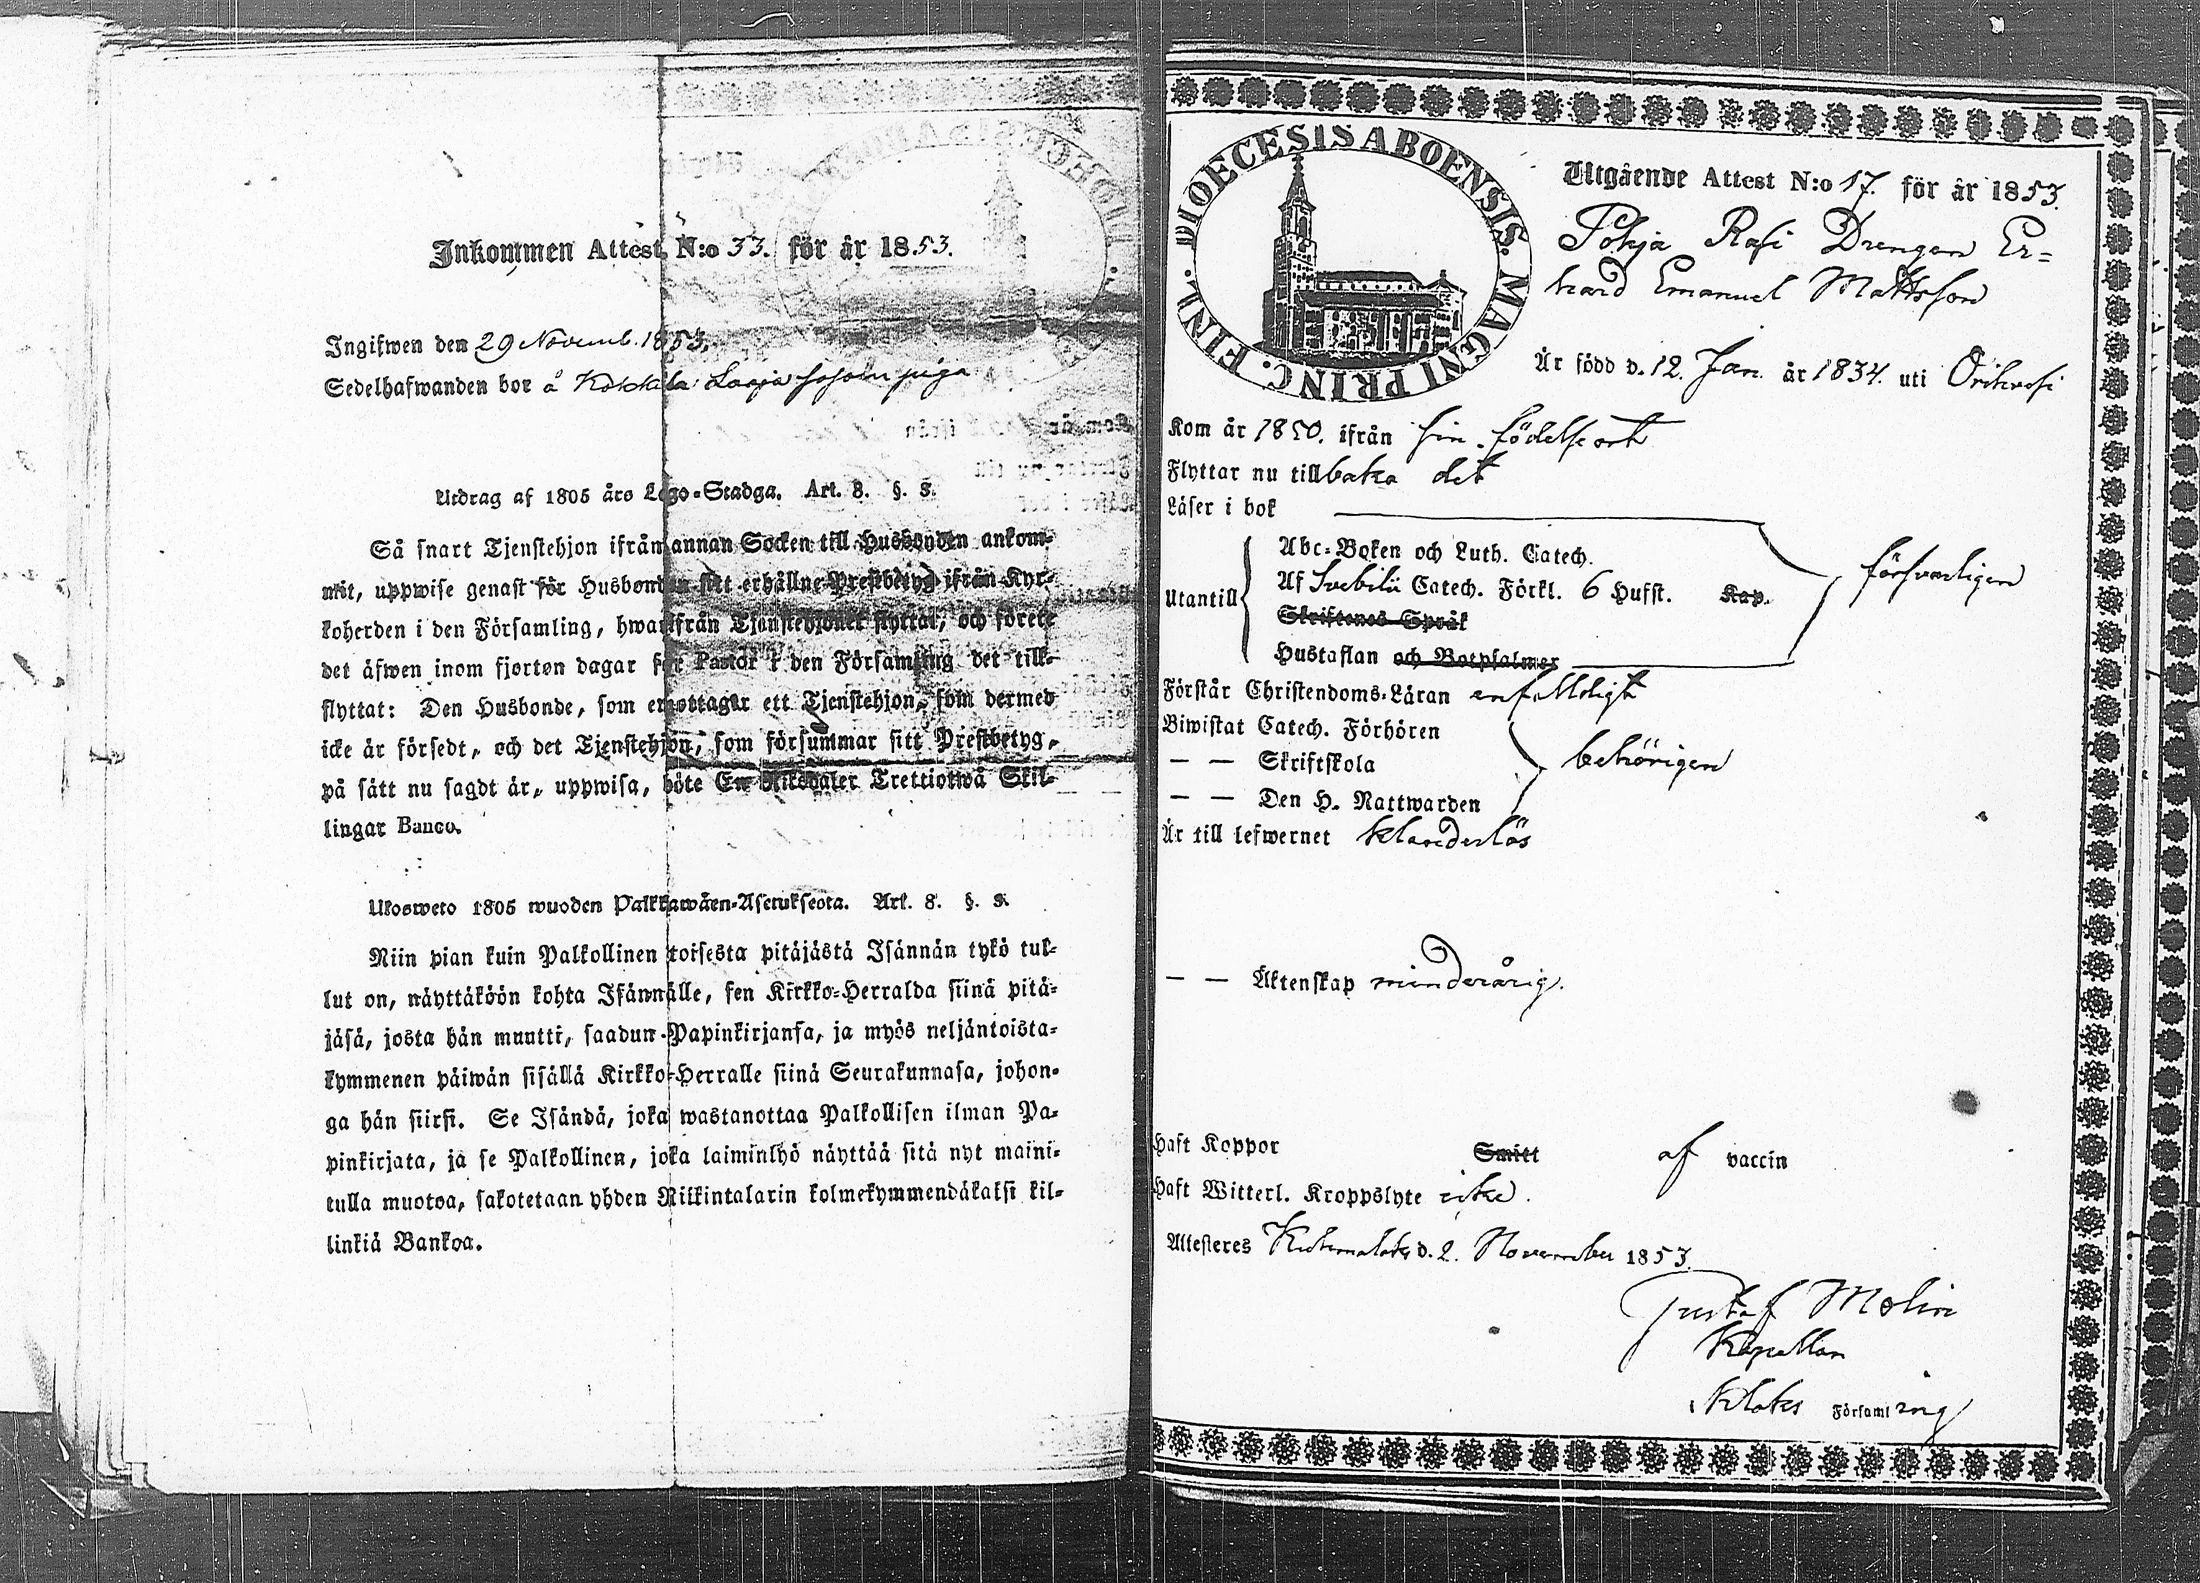 Inkommen Attest N:o 33. för år 1853.
Ingifwen den 29 Novemb. 1853.
Sedelhafwanden bor å Kokkala Laaja piga
Utdrag af 1805 års Lego-Stadga. Art. 8. §. 3.
Så snart Tjenstehjon ifrån annan Socken till Husbonden ankom-
mit, uppwise genast för Husbonden sitt erhållne Prestbetyg ifrån Kyr-
koherden i den Församling, hwarifrån Tjenstehjonet flyttat, och förete
det äfwen inom fjorton dagar för Pastor i den Församling det till-
flyttat: Den Husbonde, som emottager ett Tjenstehjon, som dermed
icke är försedt, och det Tjenstehjon, som försummar sitt Prestbetyg,
på sätt nu sagdt är, uppwisa, böte En Riksdaler Trettiotwå Skil-
lingar Banco.
Ulosweto 1805 wuoden Palkkawäen-Asetuksesta. Art. 8. §. 3.
Niin pian kuin Palkollinen toisesta pitäjästä Isännän tykö tul-
lut on, näyttäköön kohta Isännälle, sen Kirkko-Herralda siinä pitä-
jäsä, josta hän muutti, saadun Papinkirjansa, ja myös neljäntoista-
kymmenen päiwän sisällä Kirkko-Herralle siinä Seurakunnasa, johon-
ga hän siirsi. Se Isändä, joka wastanottaa Palkollisen ilman Pa-
pinkirjata, ja se Palkollinen, joka laiminlyö näyttää sitä nyt maini-
tulla muotoa, sakotetaan yhden Riikintalarin kolmekymmendäkaksi kil-
linkiä Bankoa.
DIOECESIS ABOENSIS. MAGNI PRINC. FINL.
Utgående Attest N:o 17. för år 1853.
Pohja Rasi Drengen Er=
hard Emanuel Mattsson
Är född d. 12. Jan. år 1834. uti Orihvesi
Kom år 1850. ifrån sin födelseort
Flyttar nu tillbaka dit
Läser i bok
Abc-Boken och Luth. Catech.
Utantill Af Svebilii Catech. Förkl. 6 Hufst. Kap. försvarligen
Skriftenes Språk
Hustaflan och Botpsalmer
Förstår Christendoms-Läran enfaldigt
Biwistat Catech. Förhören
— — Skriftskola behörigen
— — Den H. Nattwarden
Är till lefwernet klanderlös
— — Äktenskap minderårig.
Haft Koppor Smitt af vaccin
Haft Witterl. Kroppslyte icke.
Attesteres Kuhmalaks d. 2. November 1853.
Gustaf Molin
Kapellan
Klaks Församling